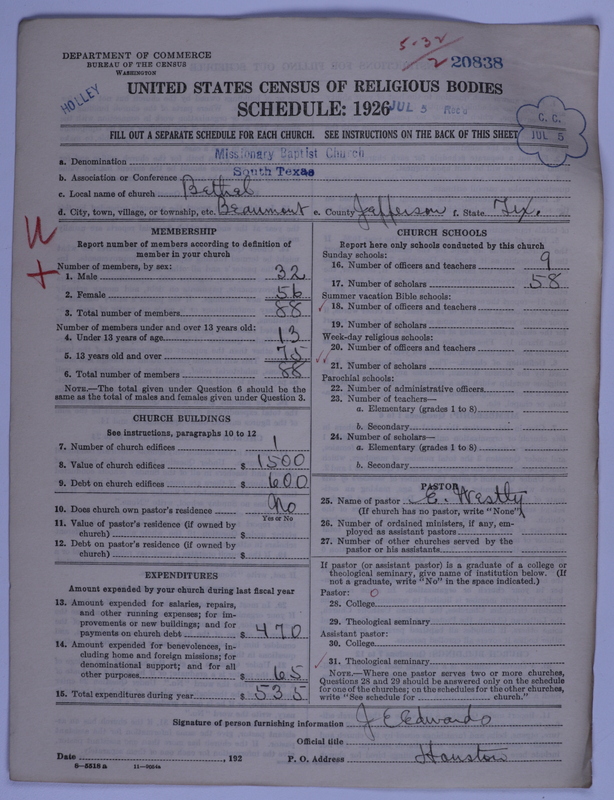 5-32
2 20838
DEPARTMENT OF COMMERCE
BUREAU OF THE CENSUS
WASHINGTON
HOLLEY
UNITED STATES CENSUS OF RELIGIOUS BODIES
SCHEDULE: 1926
JUL 5 Rec'd
C. C.
JUL 5
FILL OUT A SEPARATE SCHEDULE FOR EACH CHURCH. SEE INSTRUCTIONS ON THE BACK OF THIS SHEET
a. Denomination Missionary Baptist Church
b. Association or Conference South Texas
c. Local name of church Bethel
d. City, town, village, or township, etc. Beaumont e. County Jefferson f. State Tex.
MEMBERSHIP
Report number of members according to definition of
member in your church
Number of members, by sex:
1. Male 32
2. Female 56
3. Total number of members 88
Number of members under and over 13 years old:
4. Under 13 years of age 13
5. 13 years old and over 75
6. Total number of members 88
NOTE.—The total given under Question 6 should be the
same as the total of males and females given under Question 3.
CHURCH BUILDINGS
See instructions, paragraphs 10 to 12
7. Number of church edifices 1
8. Value of church edifices $ 1500
9. Debt on church edifices $ 600
10. Does church own pastor's residence No
Yes or No
11. Value of pastor's residence (if owned by
church) $
12. Debt on pastor's residence (if owned by
church) $
EXPENDITURES
Amount expended by your church during last fiscal year
13. Amount expended for salaries, repairs,
and other running expenses; for im-
provements or new buildings; and for
payments on church debt $ 470
14. Amount expended for benevolences, in-
cluding home and foreign missions; for
denominational support; and for all
other purposes $ 65
15. Total expenditures during year $ 535
CHURCH SCHOOLS
Report here only schools conducted by this church
Sunday schools:
16. Number of officers and teachers 9
17. Number of scholars 58
Summer vacation Bible schools:
18. Number of officers and teachers
19. Number of scholars
Week-day religious schools:
20. Number of officers and teachers
21. Number of scholars
Parochial schools:
22. Number of administrative officers
23. Number of teachers—
a. Elementary (grades 1 to 8)
b. Secondary
24. Number of scholars—
a. Elementary (grades 1 to 8)
b. Secondary
PASTOR
25. Name of pastor E. Westly
(If church has no pastor, write "None")
26. Number of ordained ministers, if any, em-
ployed as assistant pastors
27. Number of other churches served by the
pastor or his assistants
If pastor (or assistant pastor) is a graduate of a college or
theological seminary, give name of institution below. (If
not a graduate, write "No" in the space indicated.)
Pastor: 0
28. College
29. Theological seminary
Assistant pastor:
30. College
31. Theological seminary
NOTE.—Where one pastor serves two or more churches,
Questions 28 and 29 should be answered only on the schedule
for one of the churches; on the schedules for the other churches,
write "See schedule for church."
Signature of person furnishing information J E Edwards
Official title
Date , 192 P. O. Address Houston
8—5518 a